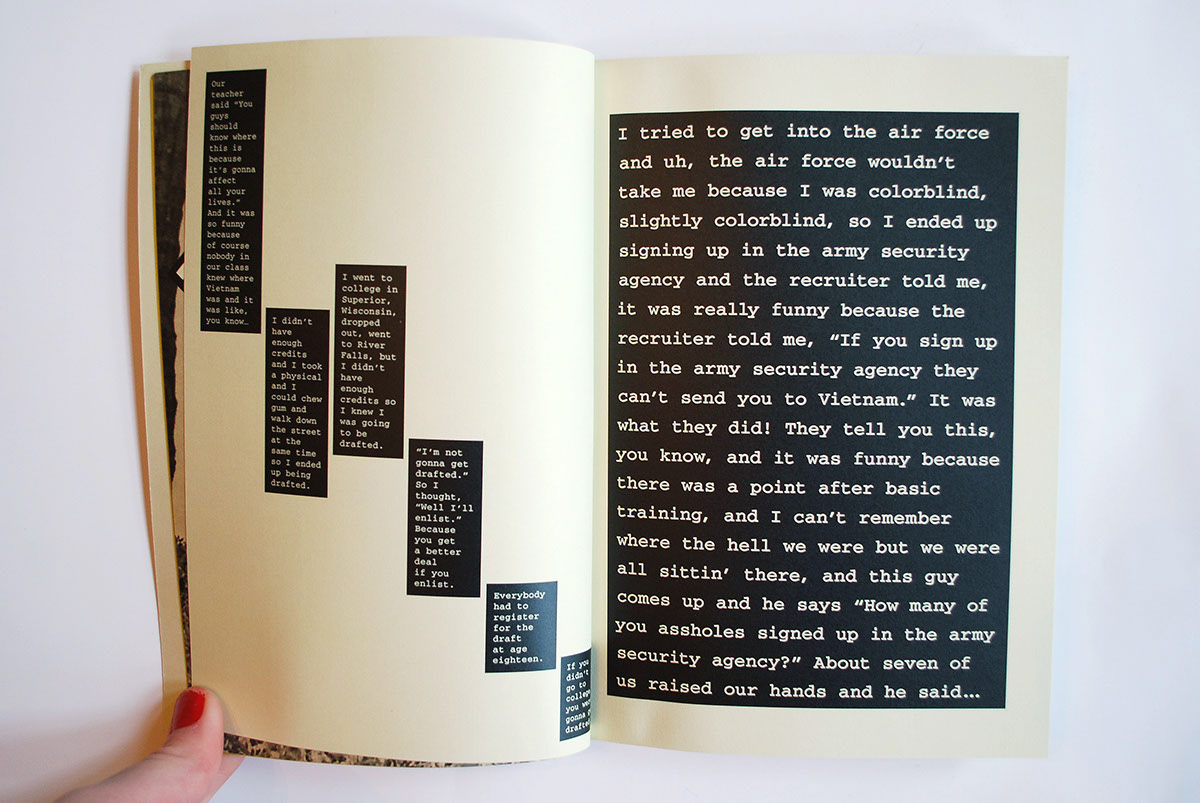 Our
teacher
said “You
guys
should
know where
this is
because
it's gonna
affect
all your
lives.”
And it was
so funny
because
of course
nobody in
our class
knew where
Vietnam
was and it
was like,
you know…
I didn’t
have
enough
credits
and I took
a physical
and I
could chew
gum and
walk down
the street
at the
same time
so I ended
up being
drafted.
I went to
college in
Superior,
Wisconsin,
dropped
out, went
to River
Falls, but
I didn’t
have
enough
credits so
I knew I
was going
to be
drafted.
“I’m not
gonna get
drafted.”
So I
thought,
“Well I’ll
enlist.”
Because
you get
a better
deal
if you
enlist.
Everybody
had to
register
for the
draft
at age
eighteen.
If you
didn't
go to
college
you
gonna
drafted
I tried to get into the air force
and uh, the air force wouldn’t
take me because I was colorblind,
slightly colorblind, so I ended up
signing up in the army security
agency and the recruiter told me,
it was really funny because the
recruiter told me, “If you sign up
in the army security agency they
can’t send you to Vietnam.” It was
what they did! They tell you this,
you know, and it was funny because
there was a point after basic
training, and I can’t remember
where the hell we were but we were
all sittin’ there, and this guy
comes up and he says “How many of
you assholes signed up in the army
security agency?” About seven of
us raised our hands and he said…